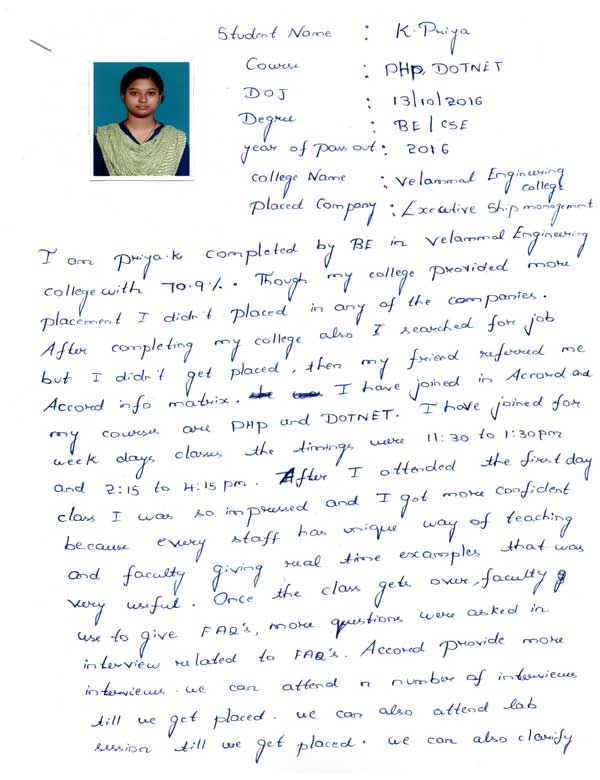 Student Name : K. Priya
Course : PHP, DOTNET
DOJ : 13/10/2016
Degree : BE / CSE
year of pass out : 2016
college Name : Velammal Engineering college
Placed Company : Executive Ship management
I am Priya.k completed by BE in Velammal Engineering
college with 70.9%. Though my college provided more
placement I didn't placed in any of the companies.
After completing my college also I searched for job
but I didn't get placed, then my friend referred me
Accord info matrix. I have joined in Accord and
my courses are PHP and DOTNET. I have joined for
week days classes the timings were 11:30 to 1:30pm
and 2:15 to 4:15 pm. After I attended the first day
class I was so impressed and I got more confident
because every staff has unique way of teaching
and faculty giving real time examples that was
very useful. Once the class gets over, faculty
use to give FAQ's, more questions were asked in
interview related to FAQ's. Accord provide more
interviews. we can attend n number of interviews
till we get placed. we can also attend lab
session till we get placed. we can also clarify